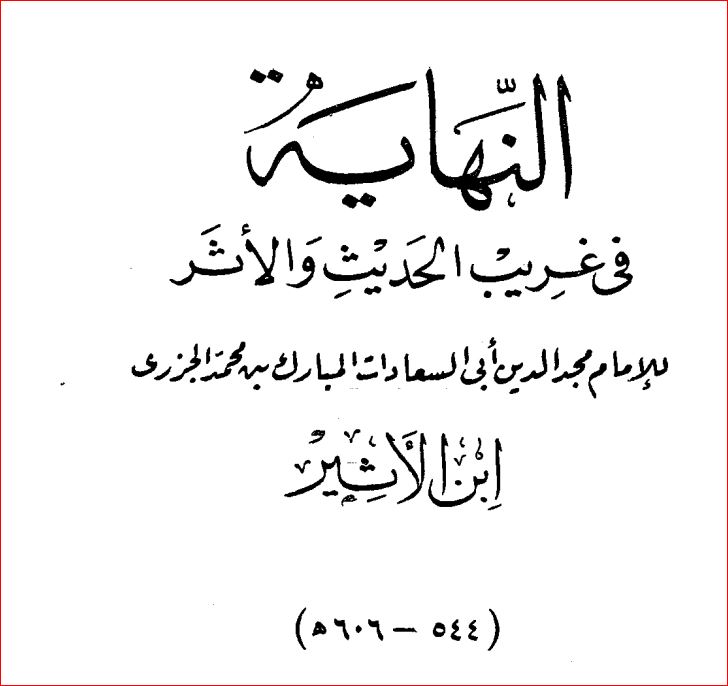 النِّهاية
في غريب الحديث والأثر
للإمام مجد الدين أبي السعادات المبارك بن محمد الجزري
ابن الأثير
(٥٤٤ — ٦٠٦ ه)